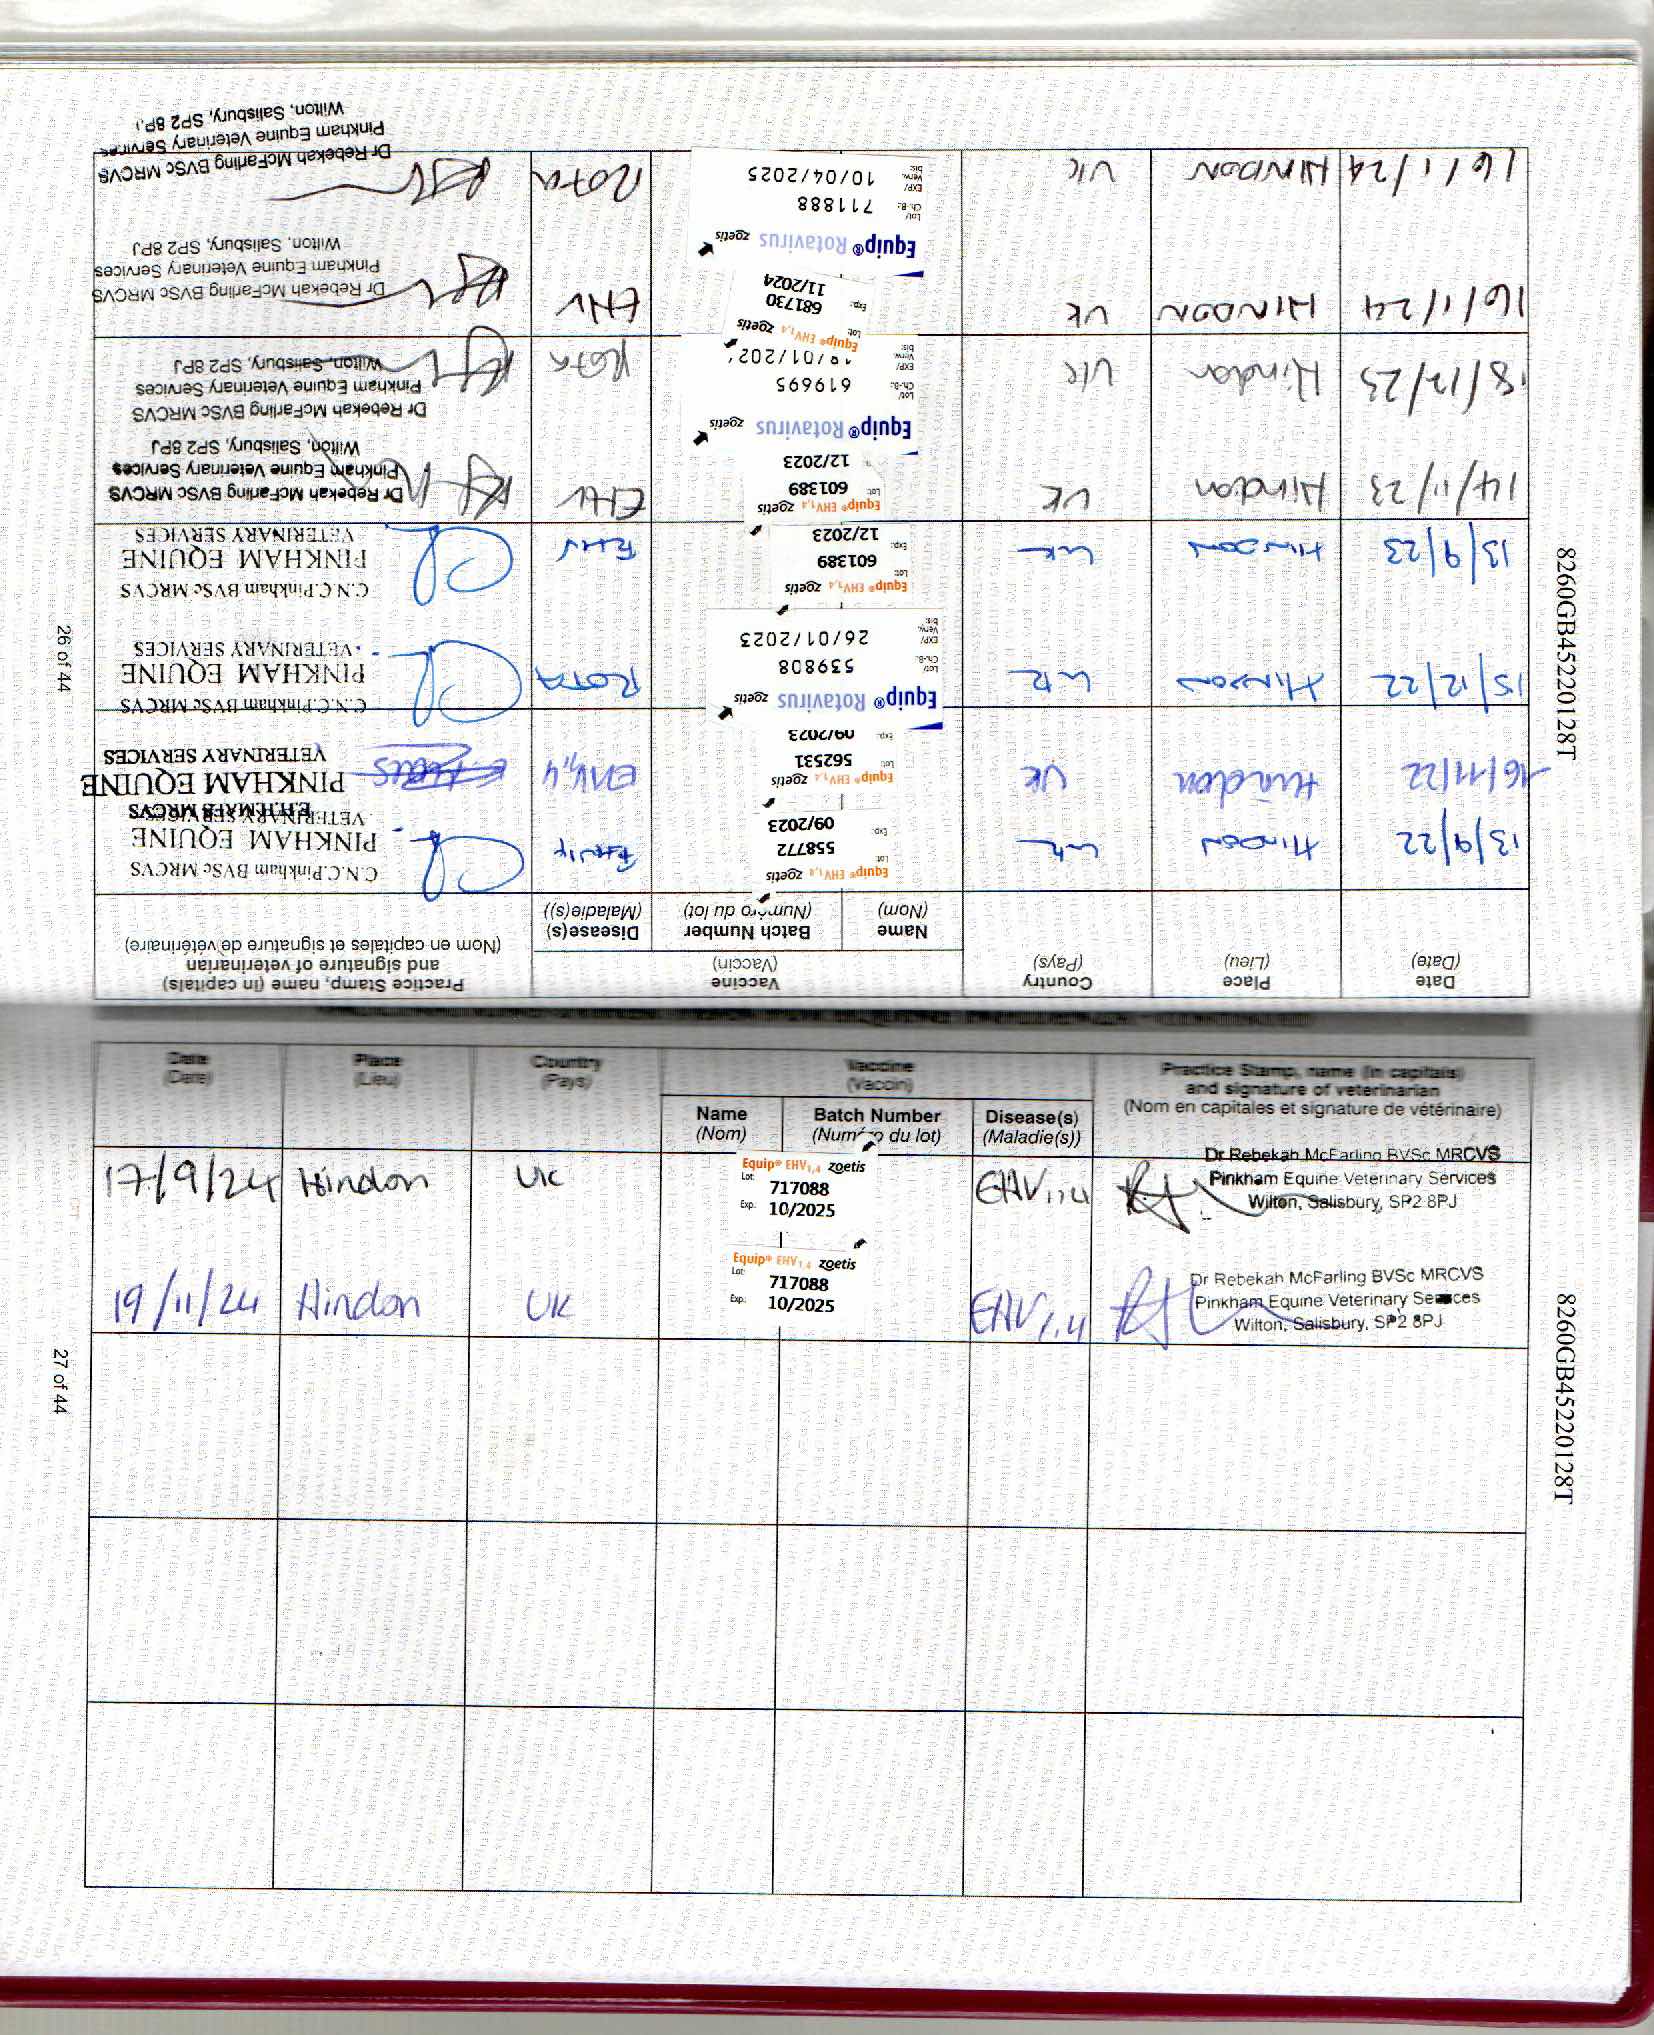 26 of 44
8260GB45220128T
Date
(Date)
Place
(Lieu)
Country
(Pays)
Vaccine
(Vaccin)
Name
(Nom)
Batch Number
(Numéro du lot)
Disease(s)
(Maladie(s))
Practice Stamp, name (in capitals)
and signature of veterinarian
(Nom en capitales et signature de vétérinaire)
13/9/22 HINDON UK
Equip® EHV1,4 zoetis
Lot 558772
Exp. 09/2023
C.N.C.Pinkham BVSc MRCVS
PINKHAM EQUINE
VETERINARY SERVICES
16/11/22 Hindon UK
Equip® EHV1,4 zoetis
562531
Exp. 09/2023
EHV1,4
E.H.EMAES MRCVS
PINKHAM EQUINE
VETERINARY SERVICES
15/12/22 HINDON UK
Equip® Rotavirus zoetis
Lot/ Ch.-B.: 539808
EXP/ Verw. bis: 26/01/2023
ROTA
C.N.C.Pinkham BVSc MRCVS
PINKHAM EQUINE
VETERINARY SERVICES
13/9/23 HINDON UK
Equip® EHV1,4 zoetis
Lot: 601389
Exp.: 12/2023
EHV
C.N.C.Pinkham BVSc MRCVS
PINKHAM EQUINE
VETERINARY SERVICES
14/11/23 Hindon UK
Equip® EHV1,4 zoetis
Lot: 601389
12/2023
EHV
Dr Rebekah McFarling BVSc MRCVS
Pinkham Equine Veterinary Services
Wilton, Salisbury, SP2 8PJ
18/12/23 Hindon UK
Equip® Rotavirus zoetis
Lot/ Ch.-B.: 619695
EXP/ Verw. bis:
Rota
Dr Rebekah McFarling BVSc MRCVS
Pinkham Equine Veterinary Services
Wilton, Salisbury, SP2 8PJ
16/1/24 HINDON UK
Equip® EHV1,4 zoetis
Lot: 681730
Exp.: 11/2024
EHV
Dr Rebekah McFarling BVSc MRCVS
Pinkham Equine Veterinary Services
Wilton, Salisbury, SP2 8PJ
16/1/24 HINDON UK
Equip® Rotavirus zoetis
Lot/ Ch.-B.: 711888
EXP/ Verw. bis: 10/04/2025
Rota
Dr Rebekah McFarling BVSc MRCVS
Pinkham Equine Veterinary Services
Wilton, Salisbury, SP2 8PJ
Date
(Date)
Place
(Lieu)
Country
(Pays)
Vaccine
(Vaccin)
Name
(Nom)
Batch Number
(Numéro du lot)
Disease(s)
(Maladie(s))
Practice Stamp, name (in capitals)
and signature of veterinarian
(Nom en capitales et signature de vétérinaire)
17/9/24 Hindon UK
Equip® EHV1,4 zoetis
Lot: 717088
Exp.: 10/2025
EHV1,4
Dr Rebekah McFarling BVSc MRCVS
Pinkham Equine Veterinary Services
Wilton, Salisbury, SP2 8PJ
19/11/24 Hindon UK
Equip® EHV1,4 zoetis
Lot: 717088
Exp.: 10/2025
EHV1,4
Dr Rebekah McFarling BVSc MRCVS
Pinkham Equine Veterinary Services
Wilton, Salisbury, SP2 8PJ
27 of 44
8260GB45220128T